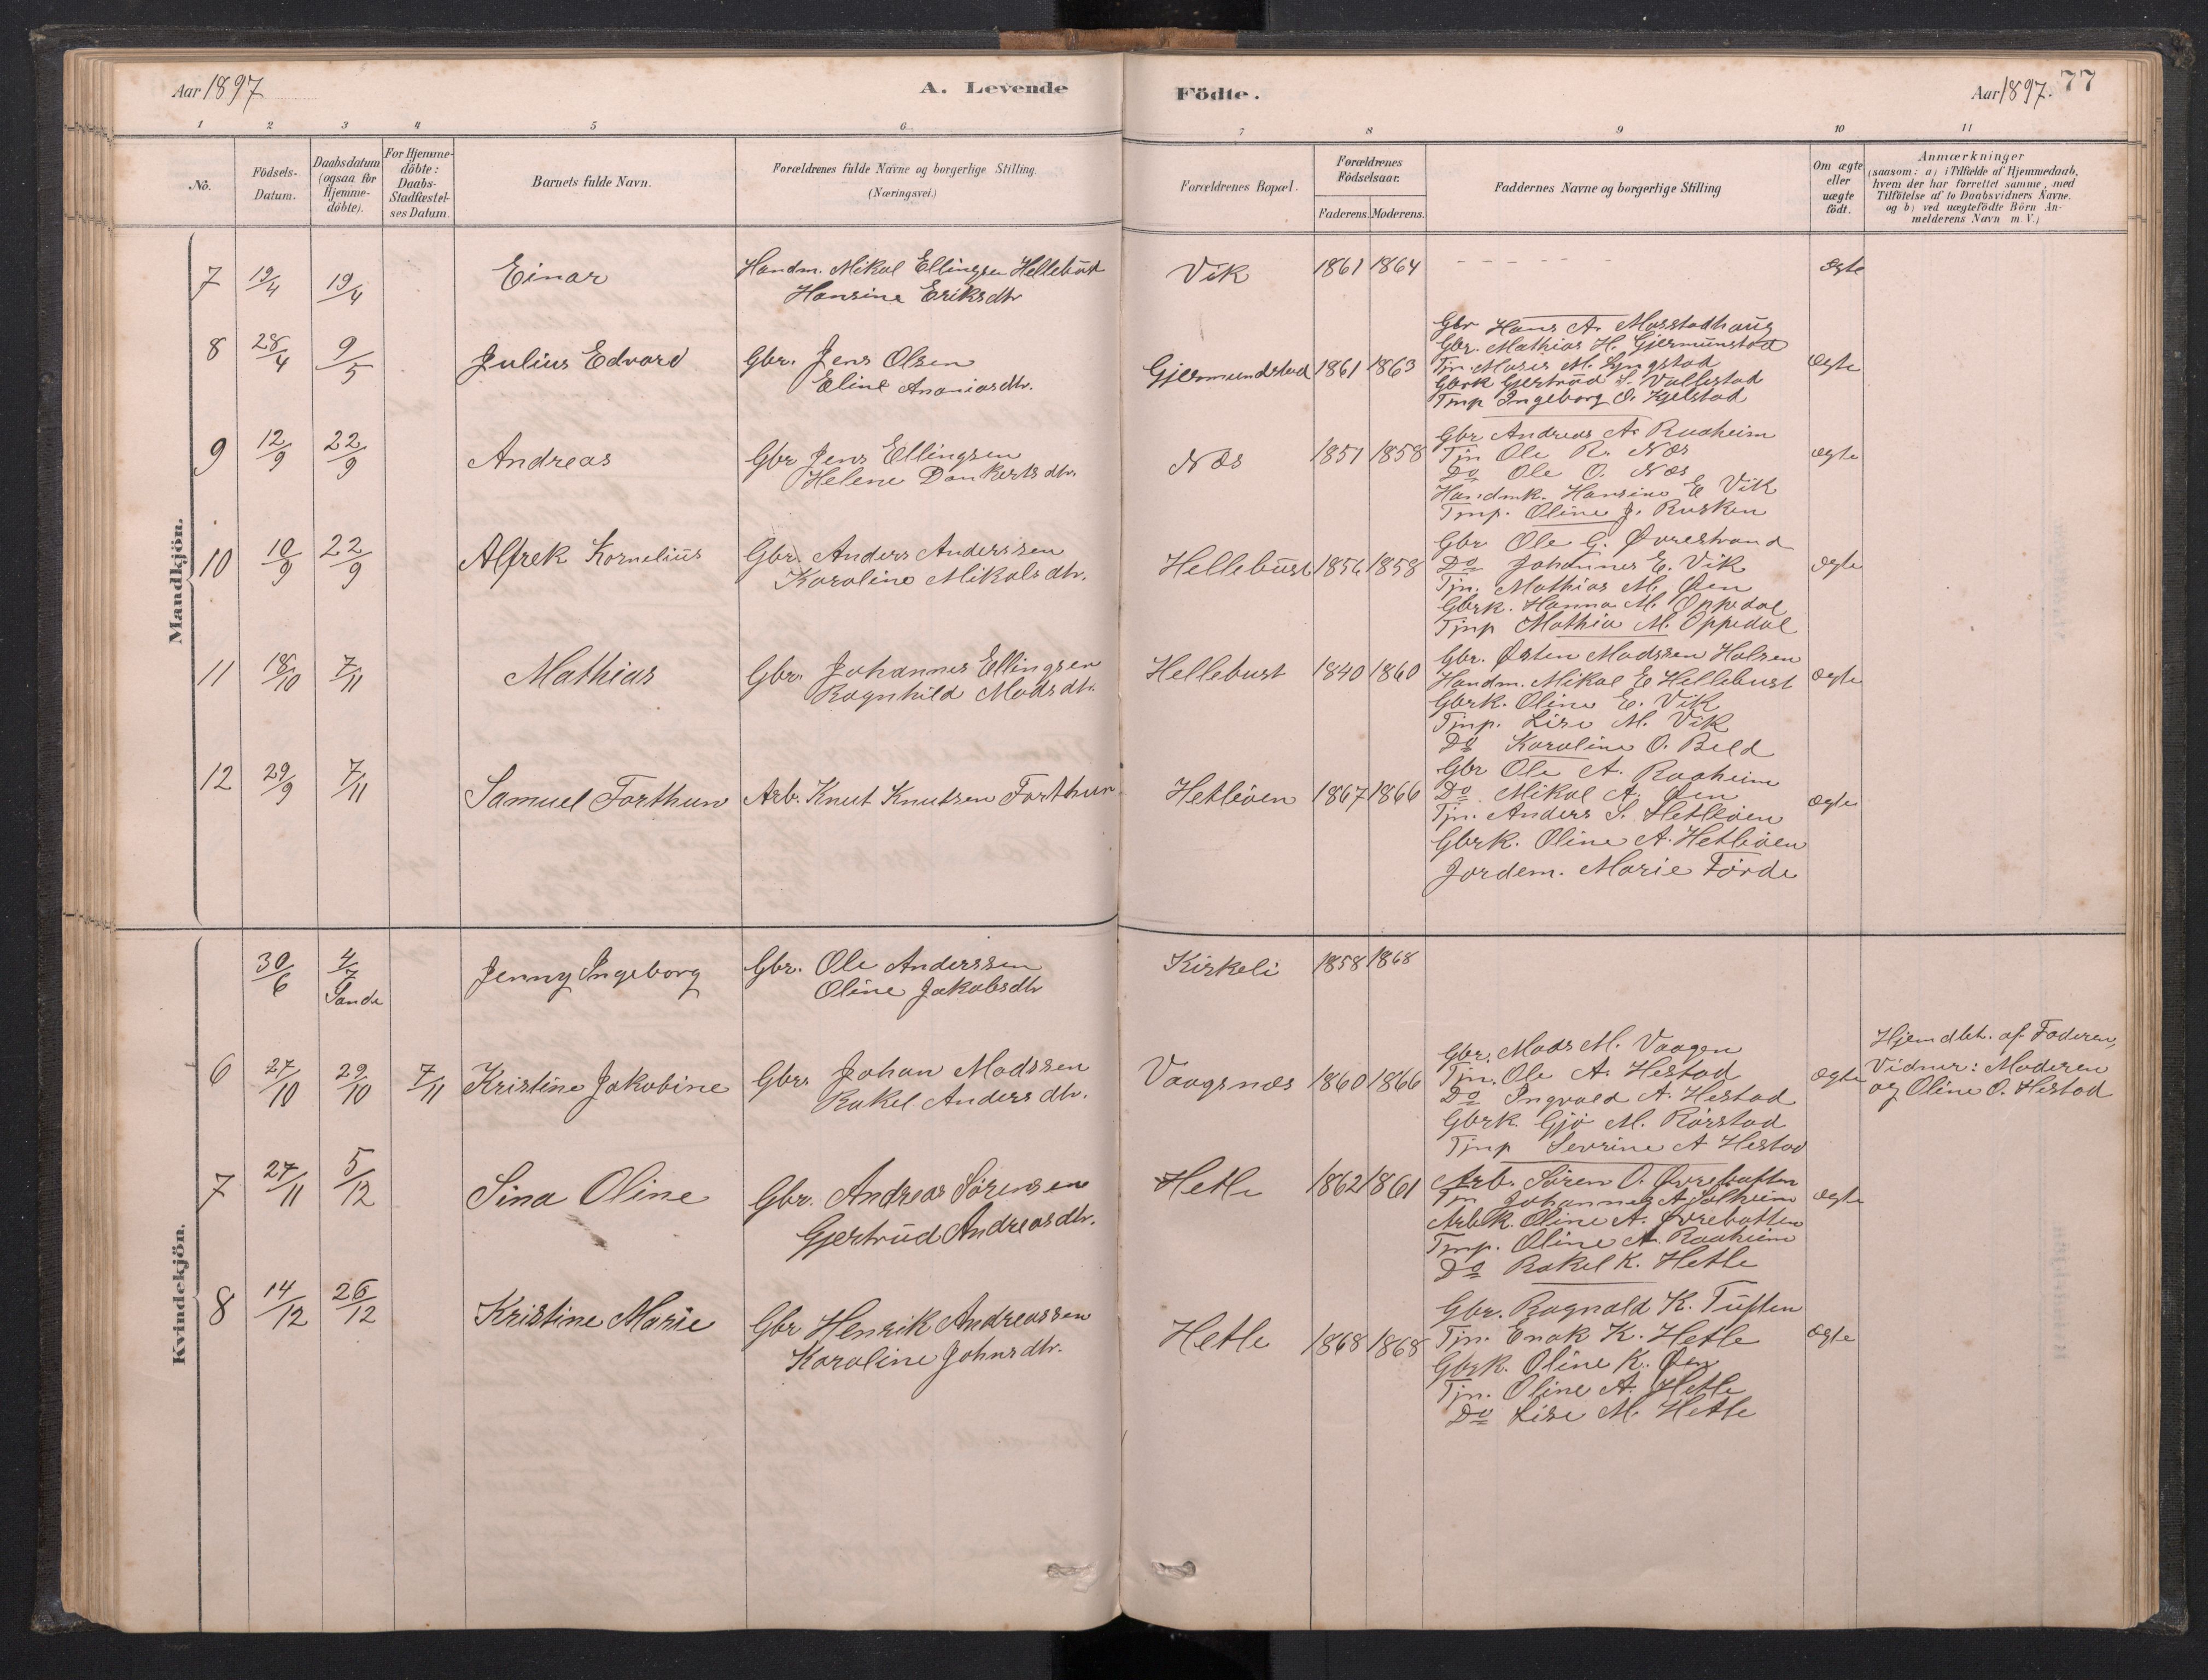 Aar 1897
A. Levende
Födte.
Aar 1897. 77
1 2 3 4 5 6 7 8 9 10 11
No.
Födsels-Datum.
Daabsdatum (ogsaa for Hjemme-döbte).
For Hjemme-döbte: Daabs-Stadfæstel-ses Datum.
Barnets fulde Navn.
Forældrenes fulde Navne og borgerlige Stilling.
(Næringsvei.)
Forældrenes Bopæl.
Forældrenes Födselsaar.
Faderens. Moderens.
Faddernes Navne og borgerlige Stilling
Om ægte eller uægte födt.
Anmærkninger
(saasom: a) i Tilfælde af Hjemmedaab,
hvem der har forrettet samme, med
Tilföielse af to Daabsvidners Navne.
og b) ved uægtefödte Börn An-
melderens Navn m. V.)
Mandkjön.
7 19/4 19/4 Einar Handm. Mikal Ellingsen Hellebust Vik 1861 1864 - - - - - - ægte
Hansine Eriksdtr
8 28/4 9/5 Julius Edvard Gbr. Jens Olsen Gjermundstad 1861 1863 ægte
Eline Ananiasdtr.
Gbr Hans A. Masstadhaug
Gbr. Mathias H. Gjermunstad
Tjn. Moses M. Lyngstad
Gbrk Gjertrud S. Vallestad
Tmp Ingeborg O. Kjelstad
9 12/9 22/9 Andreas Gbr Jens Ellingsen Næs 1851 1858 ægte
Helene Dankertsdtr.
Gbr Andreas A. Raaheim
Tjn Ole R. Næs
Do Ole O. Næs
Handmk. Hansine E Vik
Tmp. Oline J. Rusken
10 10/9 22/9 Alfrek Kornelius Gbr. Anders Anderssen Hellebust 1856 1858 ægte
Karoline Mikalsdtr.
Gbr Ole G. Øvrestrand
Do Johannes E. Vik
Tjn. Mathias M. Øen
Gbrk. Hanna M. Oppedal
Tjnp Mathia M. Oppedal
11 18/10 7/11 Mathias Gbr. Johannes Ellingsen Hellebust 1840 1860 ægte
Ragnhild Madsdtr.
Gbr. Østen Madssen Halsen
Handm. Mikal E Hellebust
Gbrk. Oline E. Vik
Tjnp. Lise M. Vik
Do Karoline O. Beld
12 29/9 7/11 Samuel Forthun Arb. Knut Knutsen Forthun Hetleöen 1867 1866 ægte
Gbr Ole A. Raaheim
Do Mikal A. Øen
Tjn. Anders S. Hetleöen
Gbrk. Oline A. Hetleöen
Jordem. Marie Förde
Kvindekjön.
30/6 4/7 Sande Jenny Ingeborg Gbr. Ole Anderssen Kirkeli 1858 1868
Oline Jakobsdtr
6 27/10 29/10 7/11 Kristine Jakobine Gbr. Johan Madssen Vaagsnæs 1860 1866 ægte
Rakel Andersdtr.
Gbr. Mads M. Vaagen
Tjn. Ole A. Hestad
Do Ingvald A. Hestad
Gbrk. Gjö M. Rörstad
Tjnp Sevrine A Hestad
Hjemdbt. af Faderen,
Vidner: Moderen
og Oline O. Hestad
7 27/11 5/12 Sina Oline Gbr. Andreas Sörensen Hetle 1862 1861 ægte
Gjertrud Andreasdtr.
Arb. Sören O. Øvrebotten
Tjn Johannes A Solheim
Arbk. Oline A. Øvrebotten
Tmp. Oline A. Raaheim
Do Rakel K. Hetle
8 14/12 26/12 Kristine Marie Gbr Henrik Andreassen Hetle 1868 1868 ægte
Karoline Johnsdtr.
Gbr. Ragnald K. Tuften
Tjn. Enok K. Hetle
Gbrk. Oline K. Øen
Tjn. Oline A. Hetle
Do Lise M. Hetle